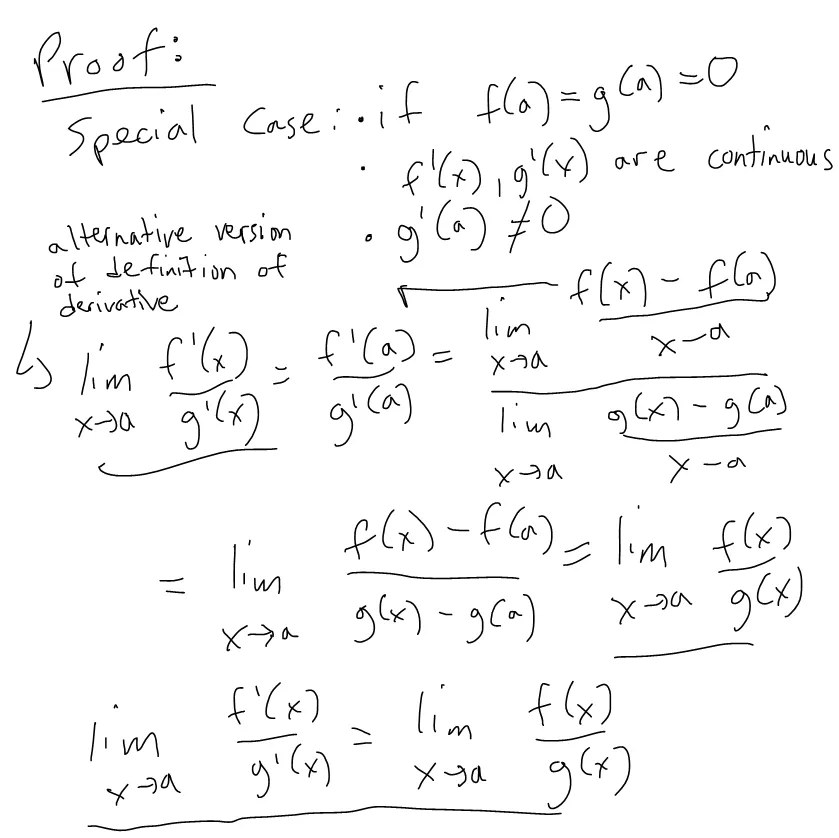 Proof:
Special Case: • if f(a) = g(a) = 0
• f'(x), g'(x) are continuous
• g'(a) ≠ 0
alternative version
of definition of
derivative
↳ lim x→a f'(x)/g'(x) = f'(a)/g'(a) = (lim x→a (f(x) - f(a))/(x - a)) / (lim x→a (g(x) - g(a))/(x - a))
= lim x→a (f(x) - f(a))/(g(x) - g(a)) = lim x→a f(x)/g(x)
lim x→a f'(x)/g'(x) = lim x→a f(x)/g(x)